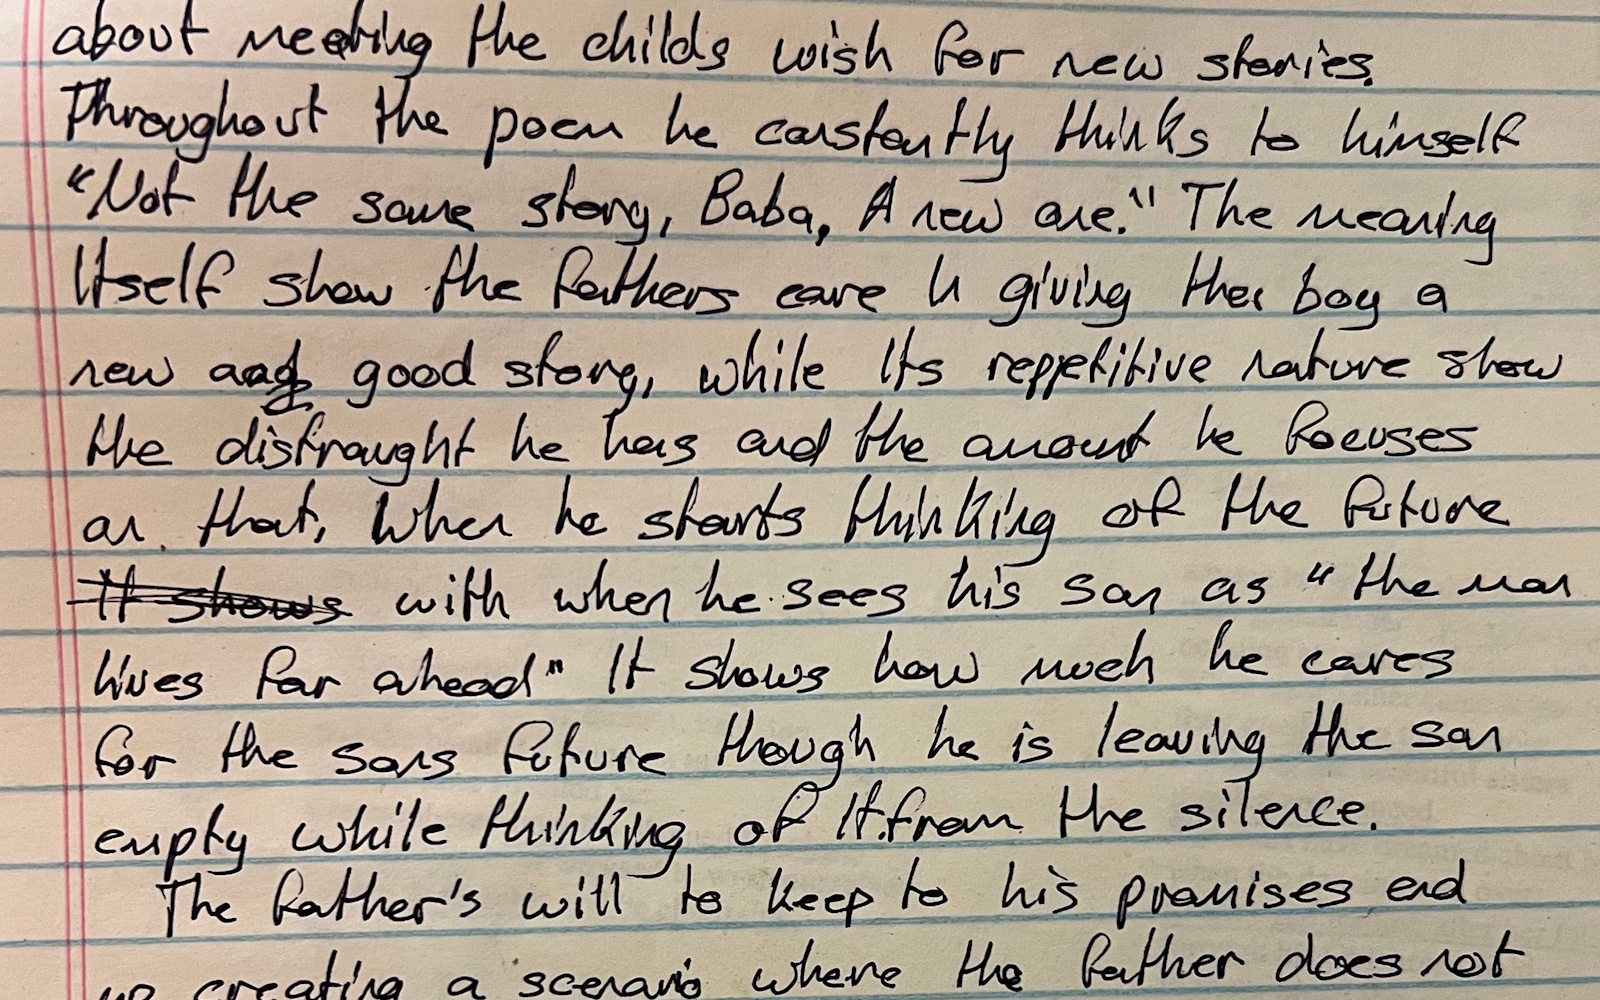 about meeting the childs wish for new stories.
Throughout the poem he constantly thinks to himself
"Not the same story, Baba, A new one." The meaning
Itself show the fathers care In giving the boy a
new and good story, while Its reppetitive nature show
the distraught he has and the amount he focuses
on that, When he starts thinking of the future
It shows with when he sees his son as "the man
lives far ahead" It shows how much he cares
for the sons future though he is leaving the son
empty while thinking of It from the silence.
The father's will to keep to his promises end
up creating a scenario where the father does not